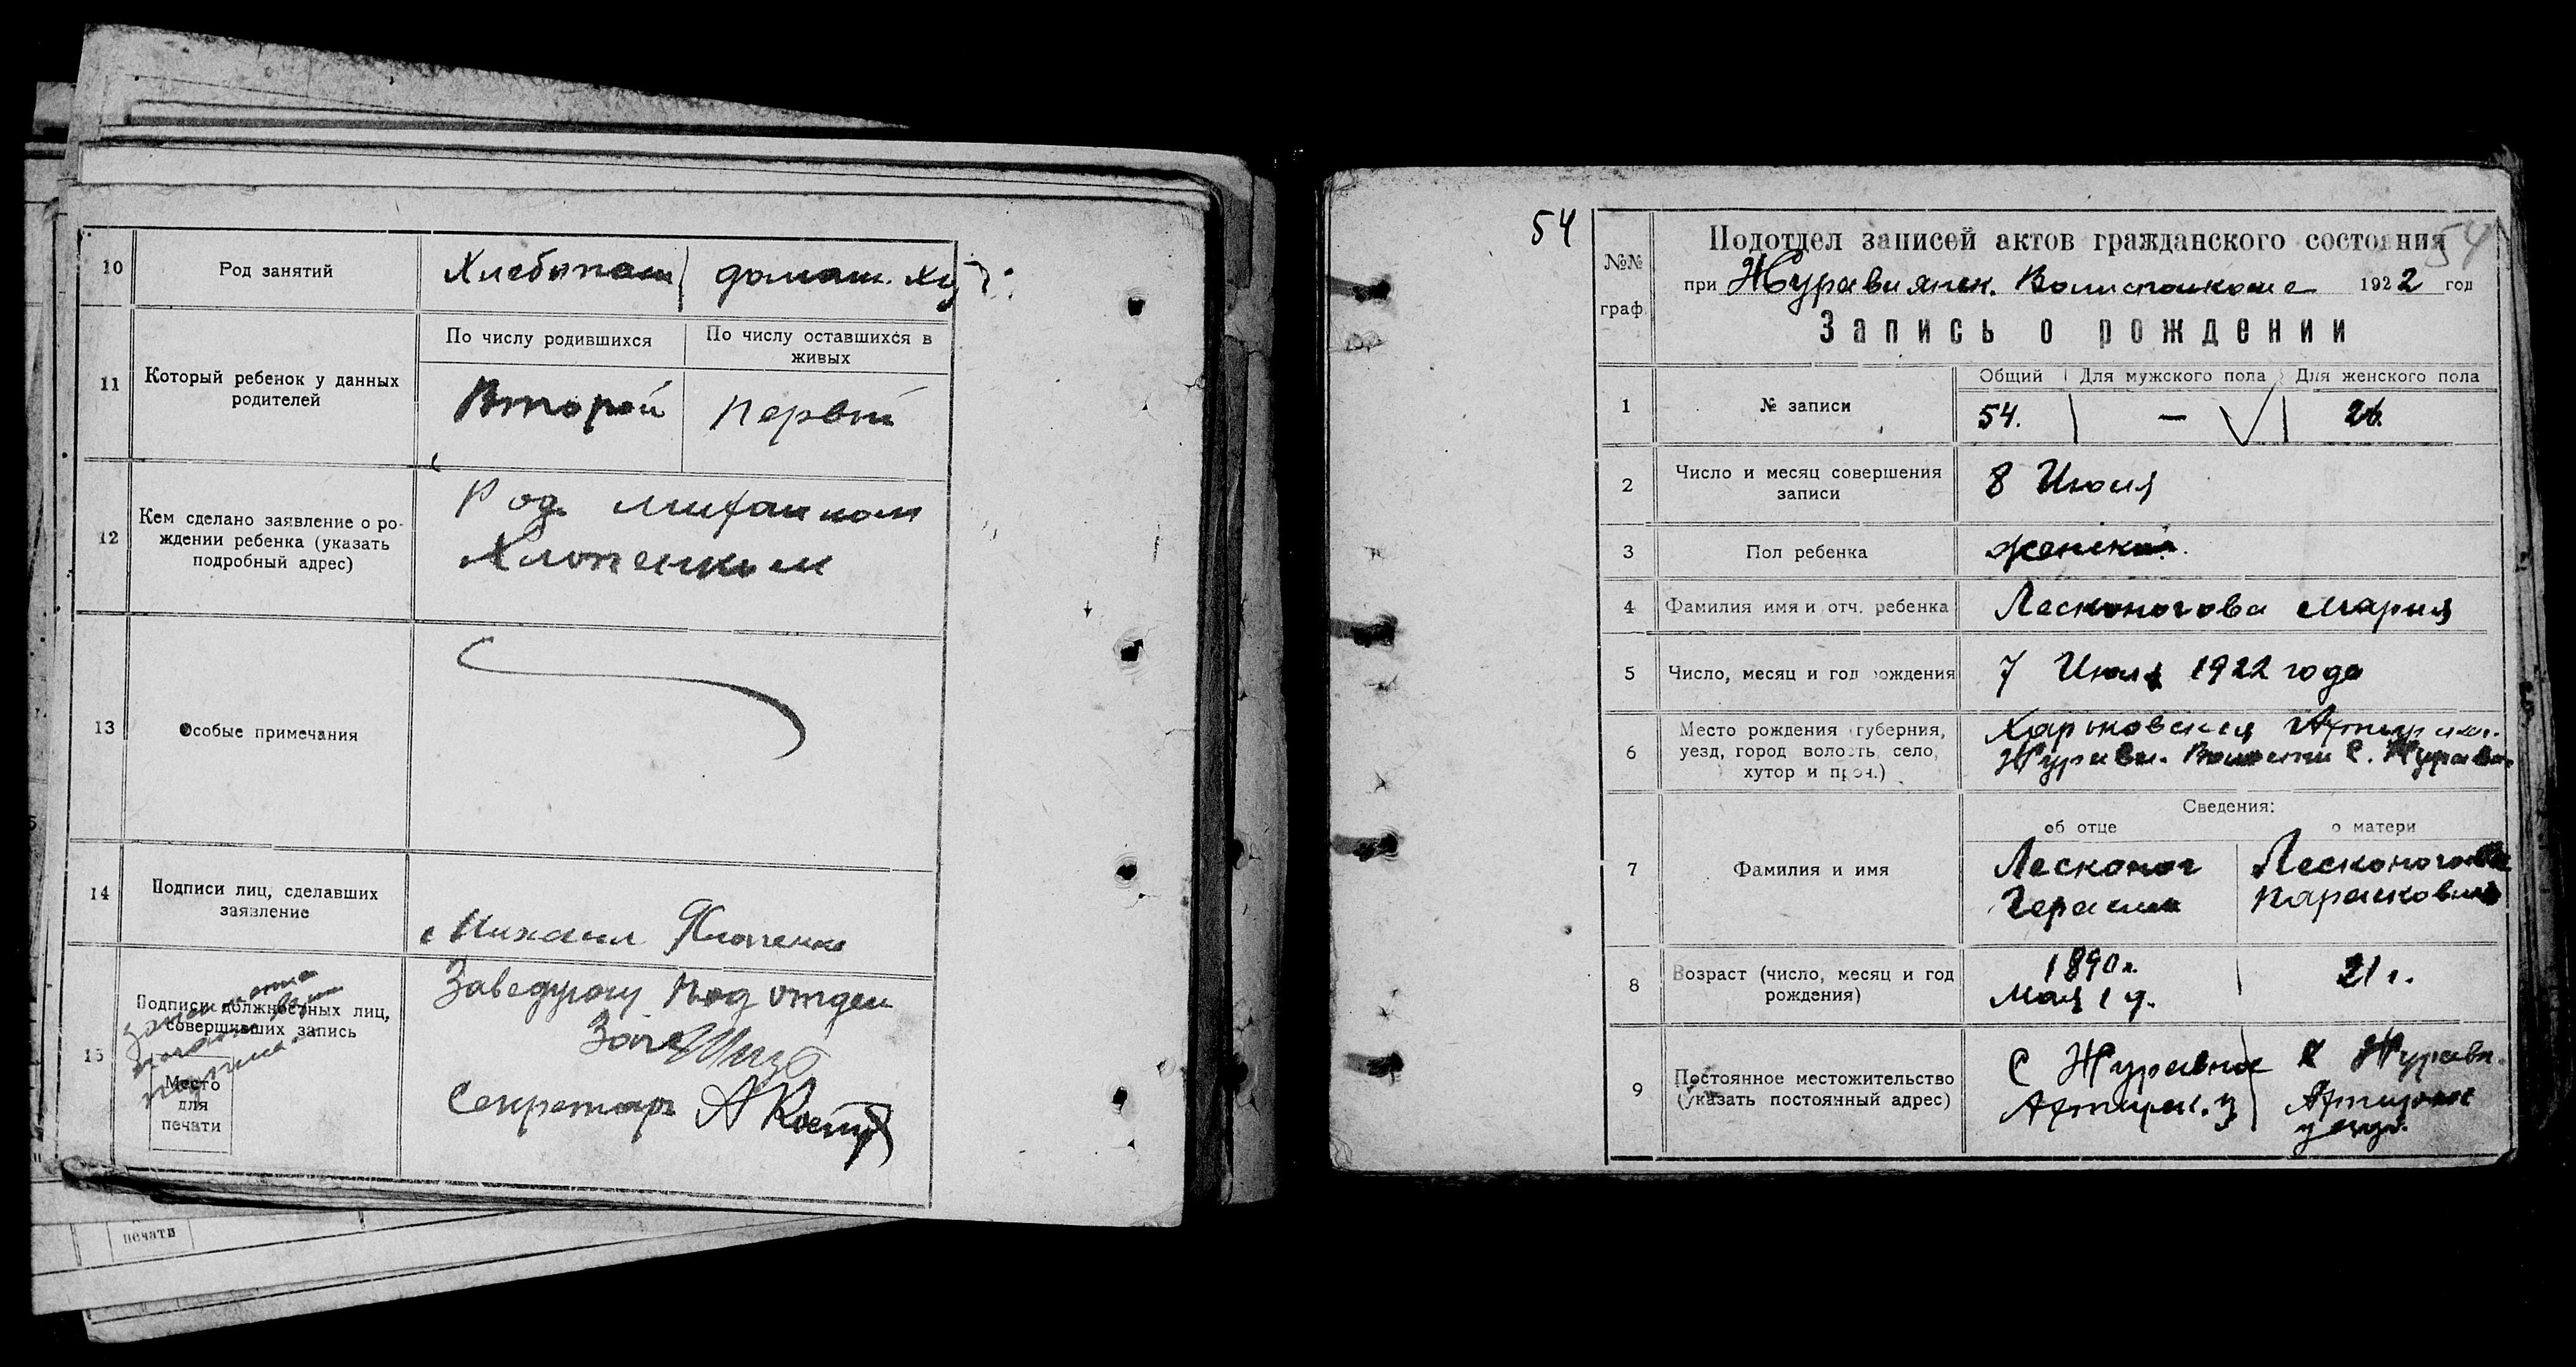 10 Род занятий Хлебопаш домаш. хз
11 Который ребенок у данных родителей
По числу родившихся
По числу оставшихся в живых
Второй
Первый
12 Кем сделано заявление о ро-
ждении ребенка (указать
подробный адрес)
Род. Михаилом
Клопенким
13 Особые примечания
14 Подписи лиц, сделавших
заявление
Михаил Клопенко
15 Подписи должностных лиц,
совершивших запись
Место
для
печати
Заведующ Подотдел
Загс
Секретарь А
печати
54
54
№№
граф.
Подотдел записей актов гражданского состояния
при Журавлянск. Волисполкоме 1922 год
Запись о рождении
1 № записи
Общий Для мужского пола Для женского пола
54. — 26.
2 Число и месяц совершения
записи
8 Июля
3 Пол ребенка женский.
4 Фамилия имя и отч. ребенка Лесконогова Мария
5 Число, месяц и год рождения 7 Июля 1922 года
6 Место рождения (губерния,
уезд, город волость, село,
хутор и проч.)
Харьковская Ахтырск.
Журавл. Волости с. Журавл.
Сведения:
об отце о матери
7 Фамилия и имя
Лесконог
Герасим
Лесконогова
Парасковия
8 Возраст (число, месяц и год
рождения)
1890 г.
Мая 1 д.
21 г.
9 Постоянное местожительство
(указать постоянный адрес)
С Журавное
Ахтырск. у
С Журавл.
Ахтырск
уезда.